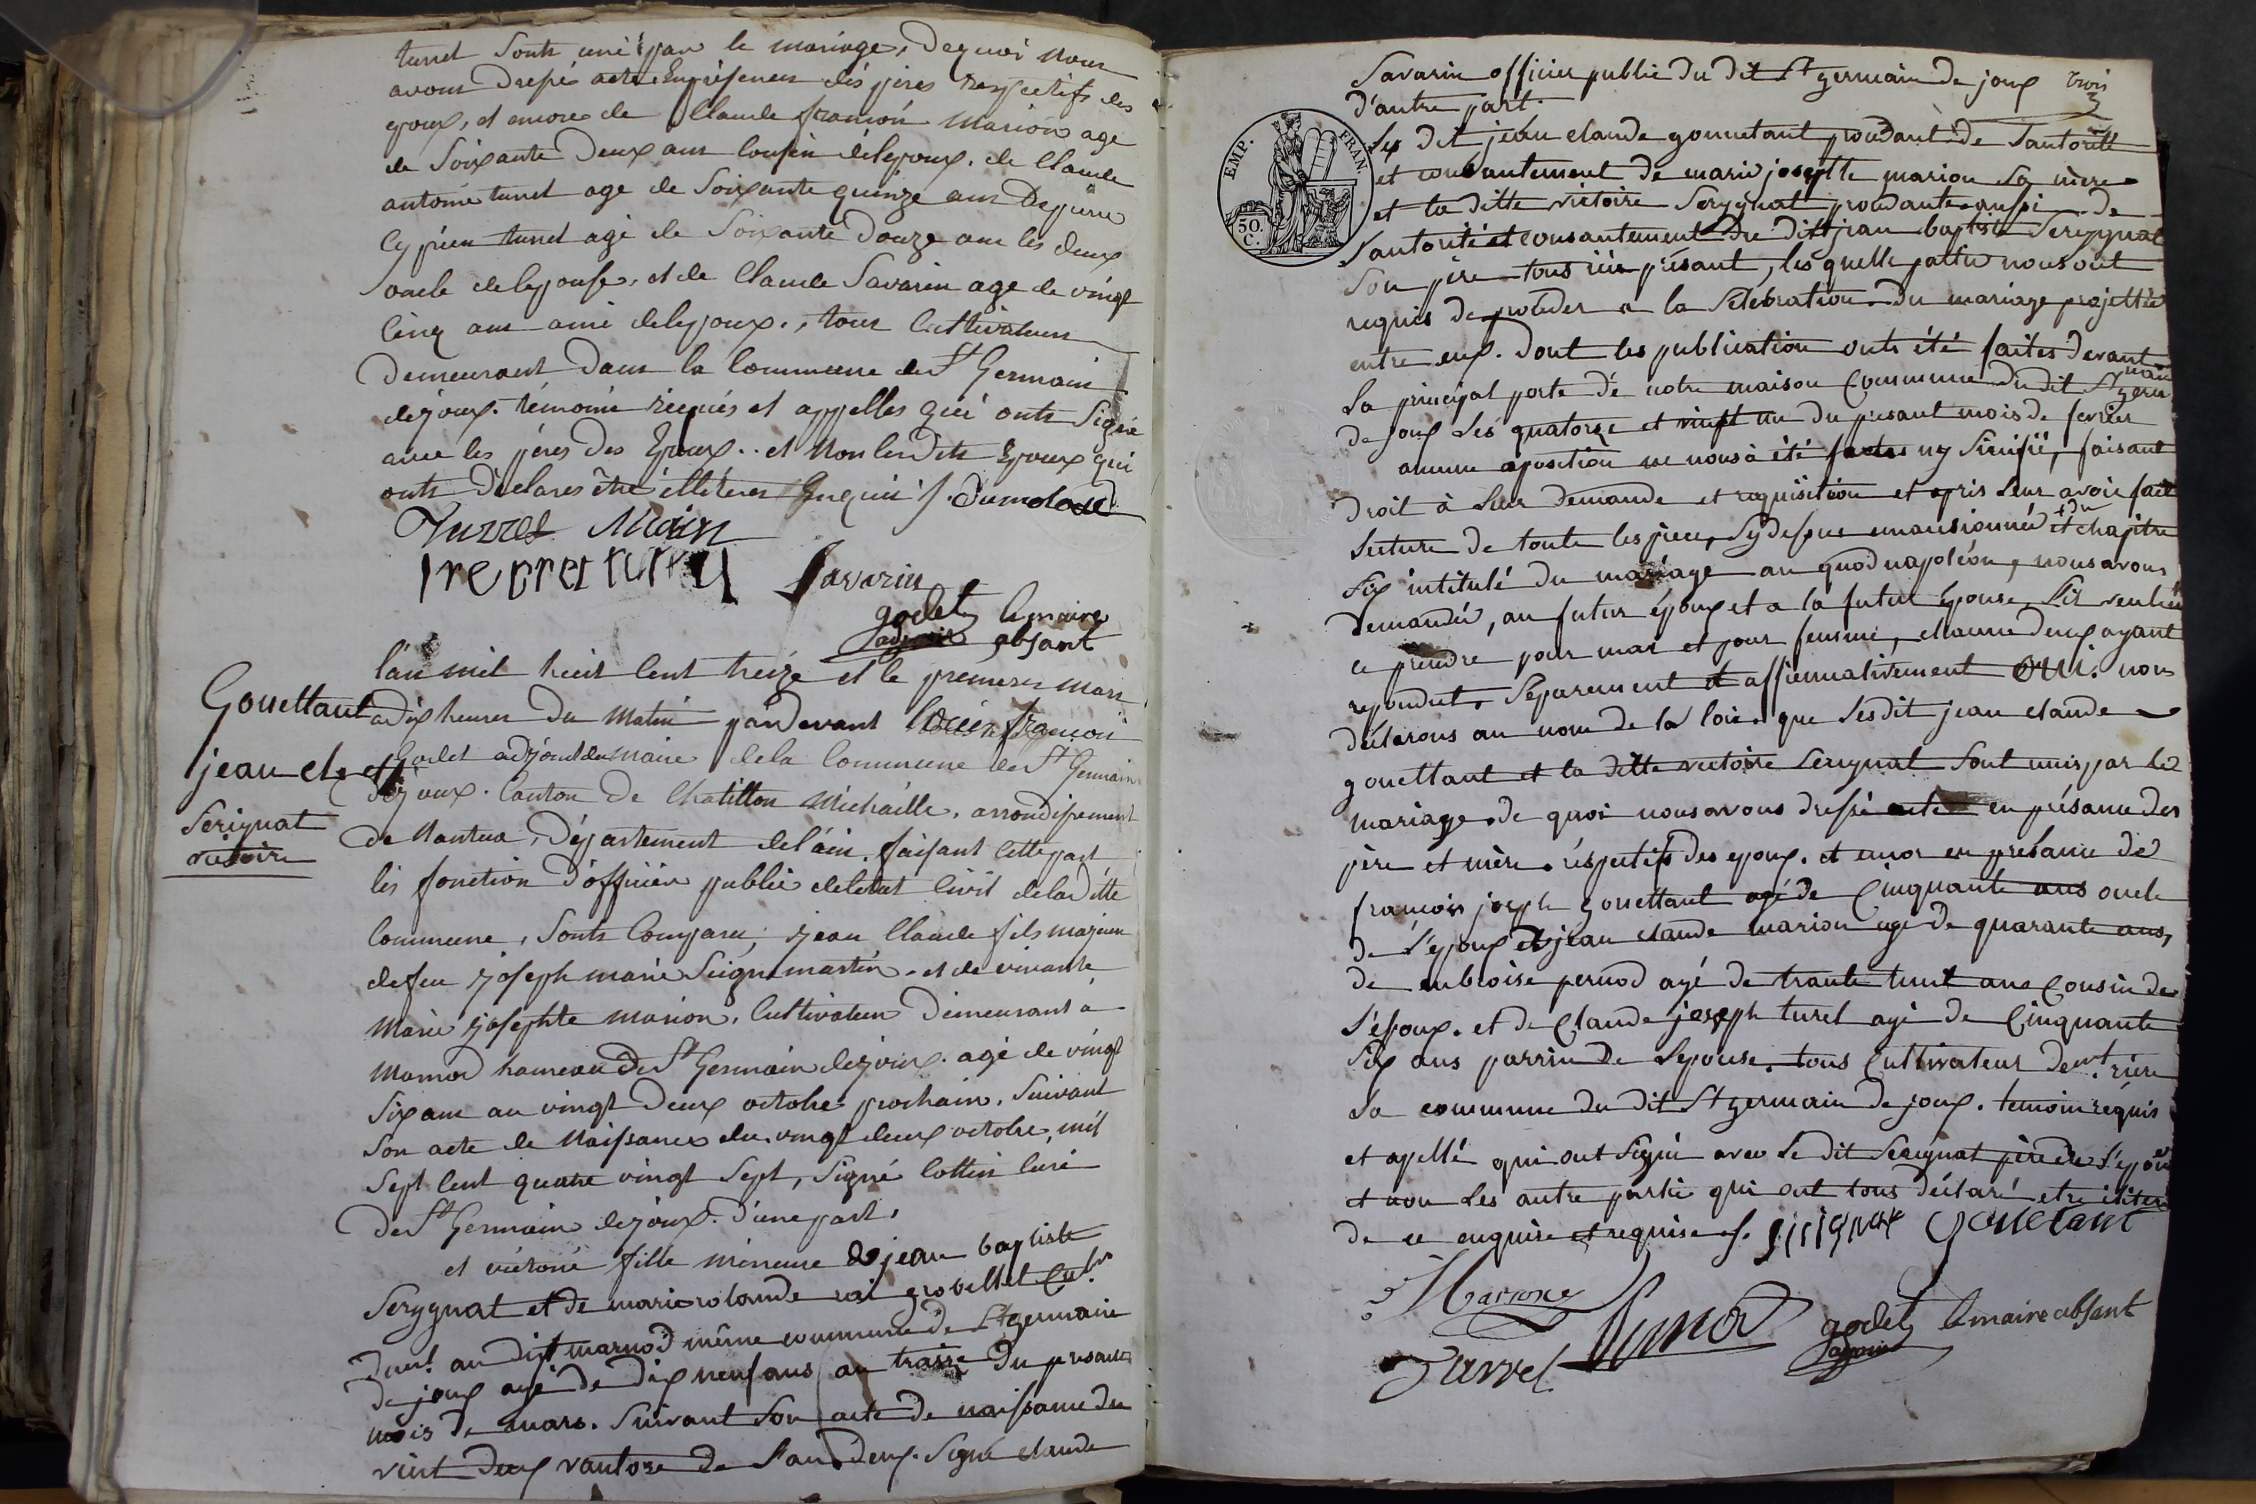 turel sonts unié par le mariage, de quoi nous
avons dressé acte En présences dés péres respectifs des
epoux, et encore de Claude françoi marion age
de soixante deux ans cousin de lepoux. de Claude
antoine turel age de soixante quinze ans De pierre
Cyprien turel agé de soixante douze ans les deux
oncle de lepouse, et de Claude Savarin age de vingt
Cinq ans ami de lepoux., tous Cultivateurs
Demeurant Dans la Commune de St Germain
dejoux. témoins réquis et appellés qui onts Signé
avec les péres des Epoux.. et Non lesdits Epoux qui
onts Déclarés être illiteres Enquis /. Dumolard
Turrel
Savarin
godet le maire
adjoint absant
Gouettant
jean cle et
Serignat
victoire
lán mil huit Cent treize et le premier mars
a dix heures du Matin pardevant françoi
Godet adjoint du maire de la Commune de St Germain
dejoux. Canton de Chatillon Michaille, arrondissement
de Nantua, Département de láin. faisant cette part
lés fonction Dófficier public de letat Civil de la ditte
Commune, sonts Comparu; jean Claude fils majeur
de feu joseph marie martin. et de vivante
Marie josephte marion, Cultivateur Demeurant á
Marnod hameau de St Germain dejoux. agé de vingt
six ans au vingt Deux octobre prochain, suivant
son acte de Naissance du vingt deux octobre, mil
sept Cent quatre vingt Sept, Signé Cottin Curé
de St Germain dejoux. d'une part,
et victoire fille mineure de jean baptiste
Serygnat et de marie rolande grobellet Cutr
demt au dit marnod même commune de St germain
de joux agé de dix neuf ans au traize du present
mois de mars. suivant son acte de naissance du
vint deux vantose de l'an deux. Signé claude
Savarin officier public du dit St germain de joux
trois
d'autre part.
EMP. FRAN.
50. C.
Le dit jean claude gouettant proudant de l'autorité
et consantement de marie josephte marion sa mère
et la ditte victoire Serygnat proudante aussi de
l'autorité et consantement du dit jean baptiste Serygnat
son père tous ici présant, les quelle partie nous ont
requis de proceder a la Sélébration du mariage projettée
entre eux. dont les publication onts été faites devant
la principal porte dé notre maison Commune du dit St germain
de joux les quatorze et vingt un du presant mois de fevrier
aucune oposition ne nous à été faites ny sinifié, faisant
droit à leur demande et requisition et apris leur avoir fait
lecture de toute les piece, sy dessus mansionnée et du chapitre
six intitulé du mariage au quod napoléon, nous avons
demandé, au futur époux et a la futur Epouse, s'il veulent
ce prendre pour mari et pour femme, chacun d'eux ayant
repondut, séparement et affirmativement oui. nous
déclarons au nom de la loi. que lesdit jean claude
gouettant et la ditte victoire Serignat sont unis par le
mariage de quoi nous avons dressé acte en présance des
père et mère réspectifs des epoux. et encor en presance de
françois joseph gouettant agé de Cinquante ans oncle
de l'epoux et jean claude marion agé de quarante ans,
de anbroise pernod agé de trante huit ans Cousin de
l'époux. et de Claude joseph turel agé de Cinquante
six ans parrin de lepouse. tous Cultivateur demt. rière
la commune du dit St germain de joux. temoin requis
et apellé qui ont signé avec le dit Serignat père de l'epouse
et non les autre partie qui ont tous déclaré etre iliteré
de ce enquise et requise /. Serignat gouetant
Marion
Pernod
godet le maire absant
Turrel
adjoint